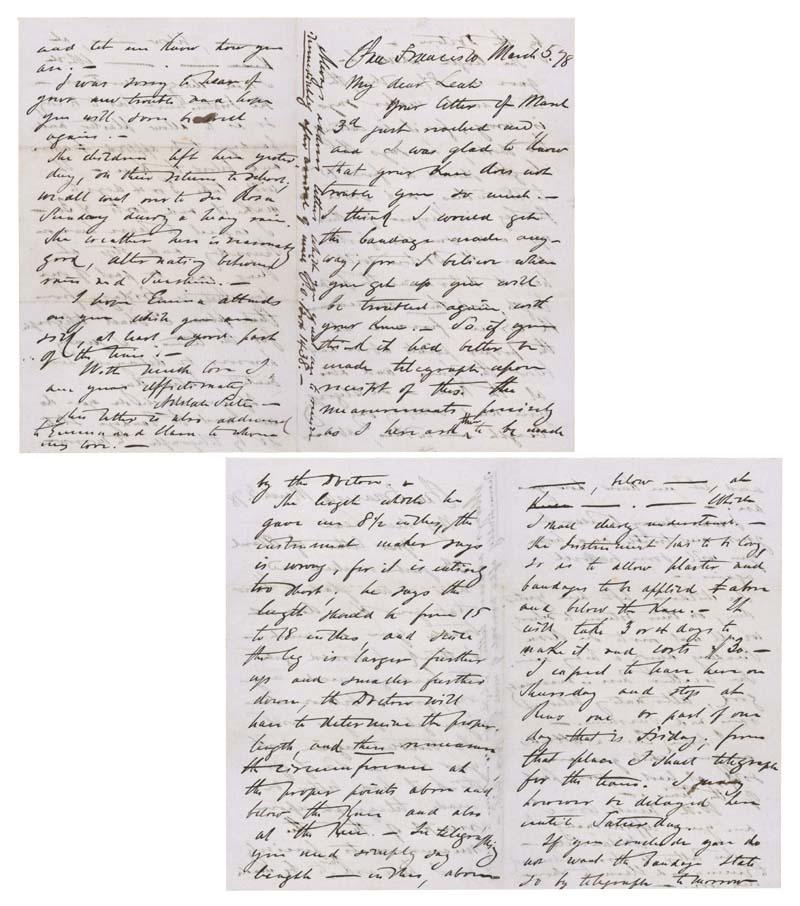 San Francisco March 5. 78
My dear Leah
Your letter of March
3d just reached me
and I was glad to know
that your knee does not
trouble you so much. —
I think I would get
the bandage made any-
way, for I believe when
you get up you will
be troubled again with
your knee. — So if you
think it had better be
made telegraph upon
receipt of this the
measurements precisely
as I here ask them to be made
by the Doctor. &
The length which he
gave me 8 1/2 inches, the
instrument maker says
is wrong, for it is entirely
too short, he says the
length should be from 15
to 18 inches, and since
the leg is larger further
up and smaller further
down, the Doctor will
have to determine the proper
length, and then remeasure
the circumference at
the proper points above and
below the Knee and also
at the Knee. — In telegraphing
you need simply say
Length — inches, above
—, below —, at
Knee — . — Which
I shall clearly understand. —
The Instrument has to be long
so as to allow plaster and
bandages to be applied above
and below the Knee. — It
will take 3 or 4 days to
make it and costs $30. —
I expect to leave here on
Thursday and stop at
Reno one or part of one
day that is Friday, from
that place I shall telegraph
for the team. I may
however be delayed here
until Saturday.
— If you conclude you do
not want the bandage state
so by telegraph — tomorrow
and let me know how you
are. —
I was sorry to hear of
your new trouble and hope
you will soon be well
again. —
The children left here yester-
day, on their return to school,
we all went over to see Rosa
Sunday during a heavy rain.
The weather here is reasonably
good, alternating between
rain and Sunshine. —
I hope Emma attends
on you while you are
sick, at least a good part
of the time. —
With much love I
am yours affectionately
Adolph Sutro —
This letter is also addressed
to Emma and Clara to whom
my love. —
Always address letters which you
immediately after arrival of mail P.O. Box 1438. —